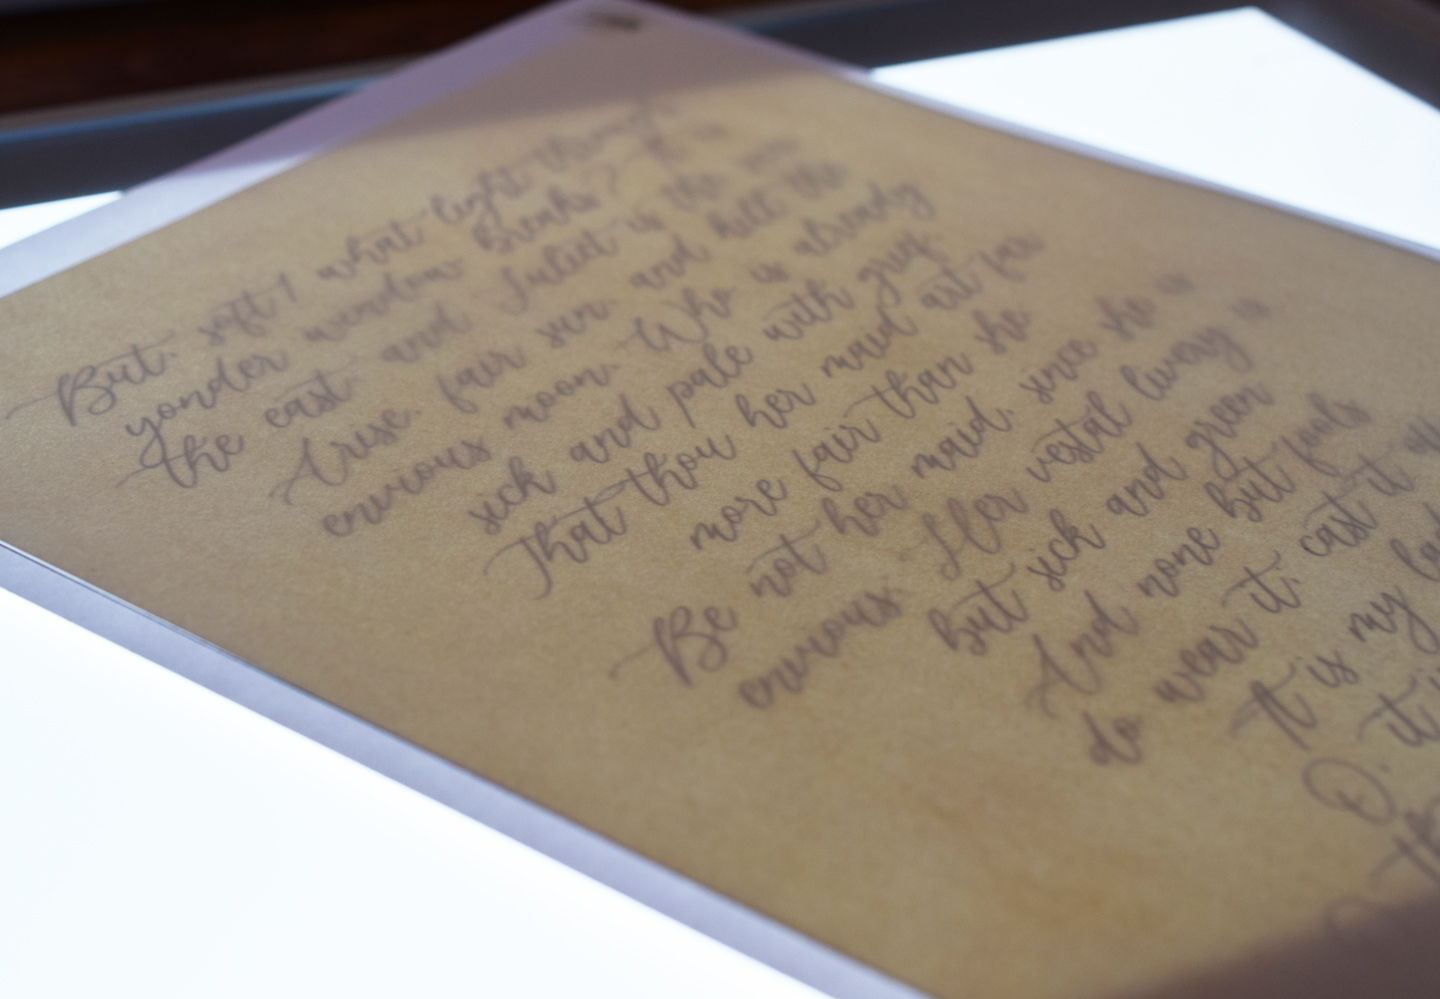 But, soft! what light through
yonder window breaks? It is
the east, and Juliet is the sun.
Arise, fair sun, and kill the
envious moon, Who is already
sick and pale with grief,
That thou her maid art far
more fair than she
Be not her maid, since she is
envious; Her vestal livery is
but sick and green
And none but fools
do wear it; cast it off.
It is my lady
it is
O,
th